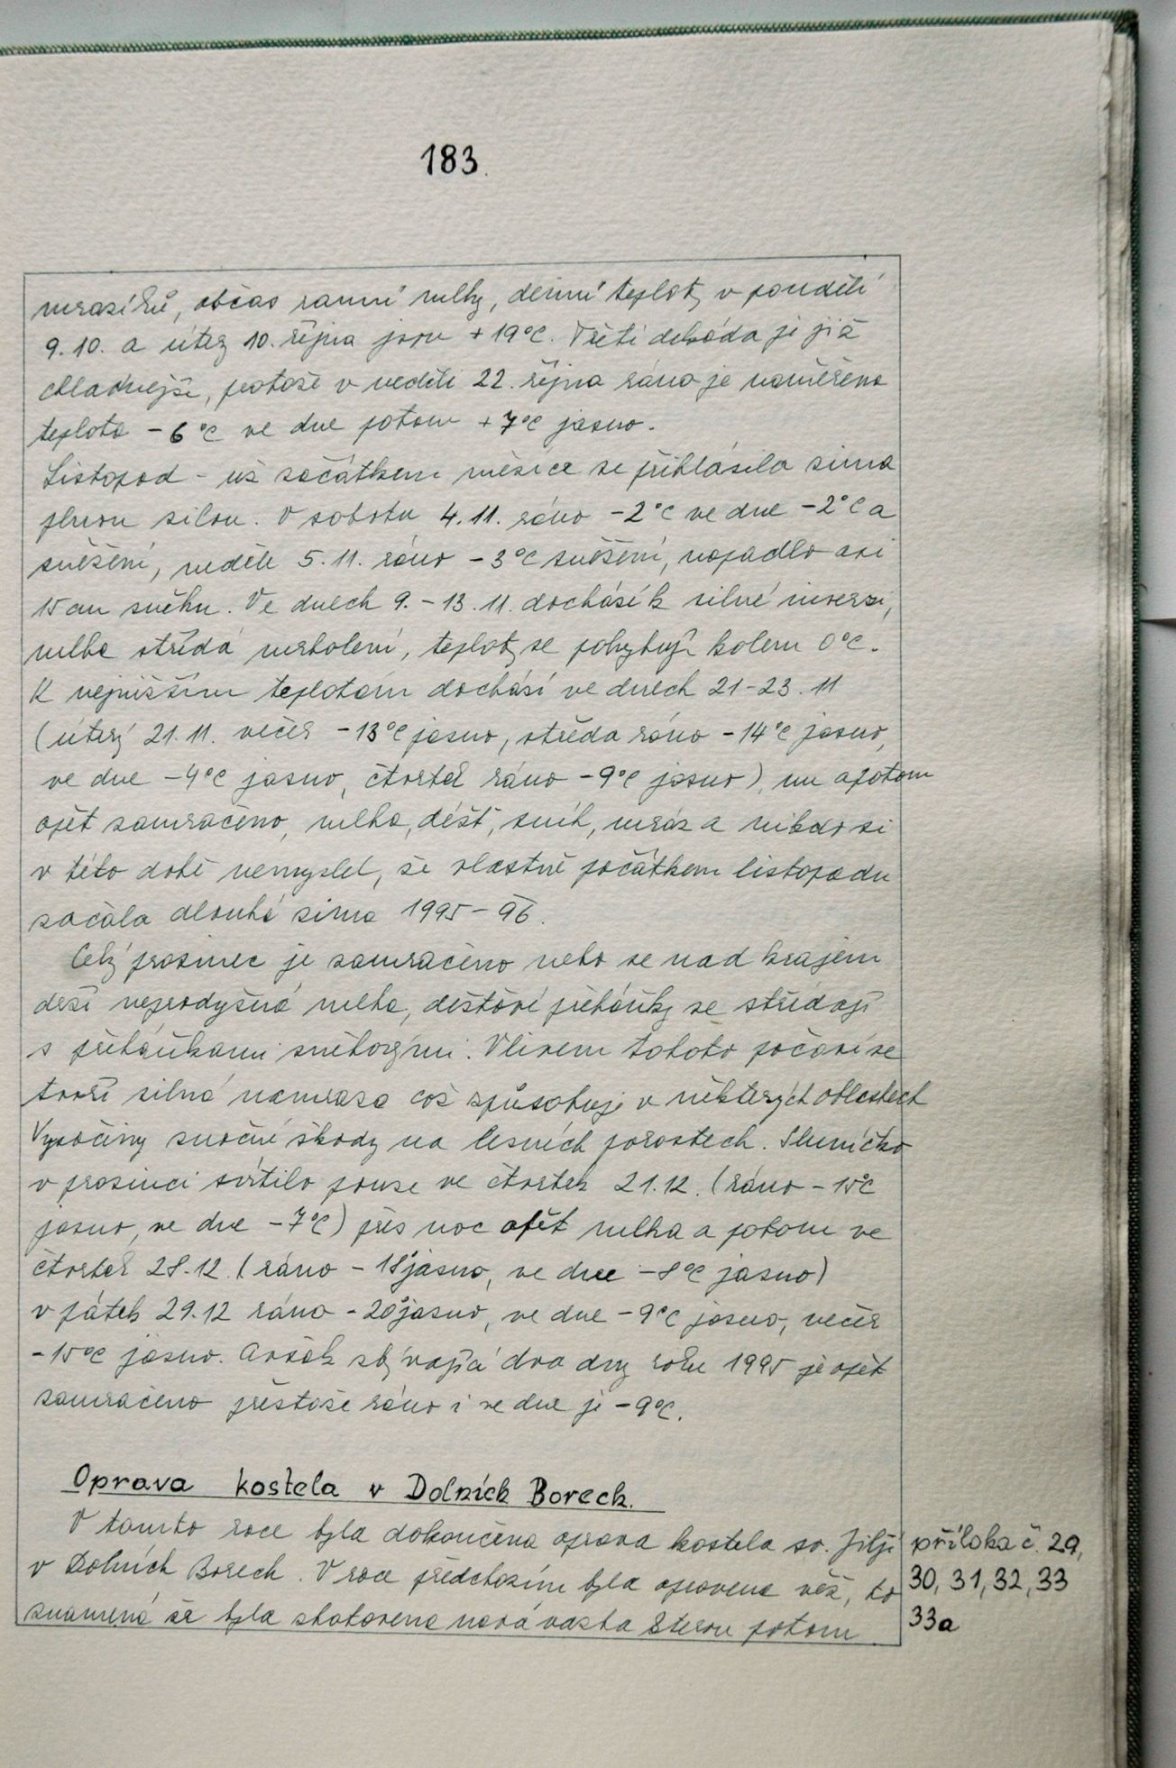 183.
mrazíků, občas ranní mlhy, denní teploty v pondělí
9.10. a úterý 10. října jsou +19°C. Třetí dekáda je již
chladnější, protože v neděli 22. října ráno je naměřena
teplota -6°C ve dne potom +7°C jasno.
Listopad - už začátkem měsíce se přihlásila zima
plnou silou. V sobotu 4.11. ráno -2°C ve dne -2°C a
sněžení, neděle 5.11. ráno -3°C sněžení, napadlo asi
15 cm sněhu. Ve dnech 9.-13.11. dochází k silné inverzi,
mlha střídá mrholení, teploty se pohybují kolem 0°C.
K nejnižším teplotám dochází ve dnech 21-23.11
(úterý 21.11. večer -13°C jasno, středa ráno -14°C jasno,
ve dne -4°C jasno, čtvrtek ráno -9°C jasno), no a potom
opět zamračeno, mlha, déšť, sníh, mráz a nikdo si
v této době nemyslel, že vlastně počátkem listopadu
začala dlouhá zima 1995-96.
Celý prosinec je zamračeno nebo se nad krajem
drží neprodyšná mlha, dešťové přeháňky se střídají
s přeháňkami sněhovými. Vlivem tohoto počasí se
tvoří silná námraza což způsobuje v některých oblastech
Vysočiny značné škody na lesních porostech. Sluníčko
v prosinci svítilo pouze ve čtvrtek 21.12. (ráno -15°C
jasno, ve dne -7°C) přes noc opět mlha a potom ve
čtvrtek 28.12. (ráno -18° jasno, ve dne -8°C jasno)
v pátek 29.12 ráno -20° jasno, ve dne -9°C jasno, večer
-15°C jasno. Avšak zbývající dva dny roku 1995 je opět
zamračeno přestože ráno i ve dne je -9°C.
Oprava kostela v Dolních Borech.
V tomto roce byla dokončena oprava kostela sv. Jiljí
v Dolních Borech. V roce předchozím byla opravena věž, to
znamená že byla zhotovena nová vazba kterou potom
příloha č. 29,
30, 31, 32, 33
33a